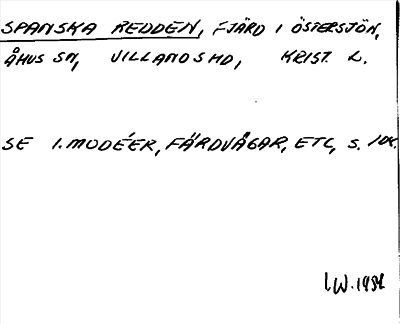 SPANSKA REDDEN, FJÄRD I ÖSTERSJÖN,
ÅHUS SN, VILLANDS HD, KRIST. L.
SE I. MODÉER, FÄRDVÄGAR, ETC, S.
I.W. 1984